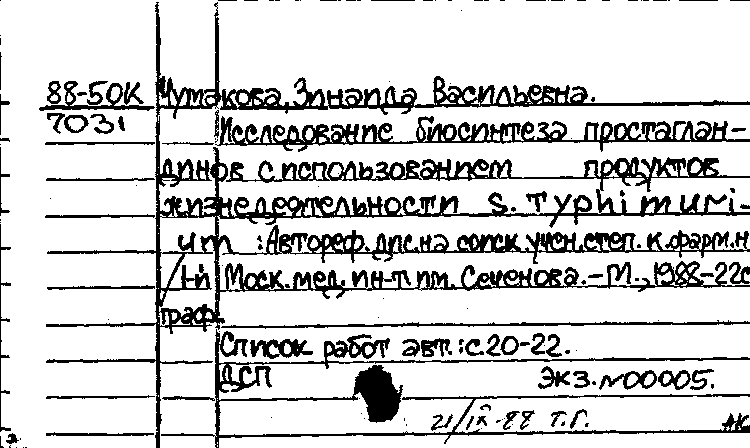 88-50К Чумакова, Зинаида Васильевна.
7031 Исследование биосинтеза простаглан-
динов с использованием продуктов
жизнедеятельности S. typhimuri-
um : Автореф. дис. на соиск. учен. степ. к. фарм. н
/ 1-й Моск. мед. ин-т им. Сеченова. – М., 1988 – 22с
граф.
Список работ авт.: с. 20-22.
ДСП Экз. №00005.
21/IX-88 Т.Г.